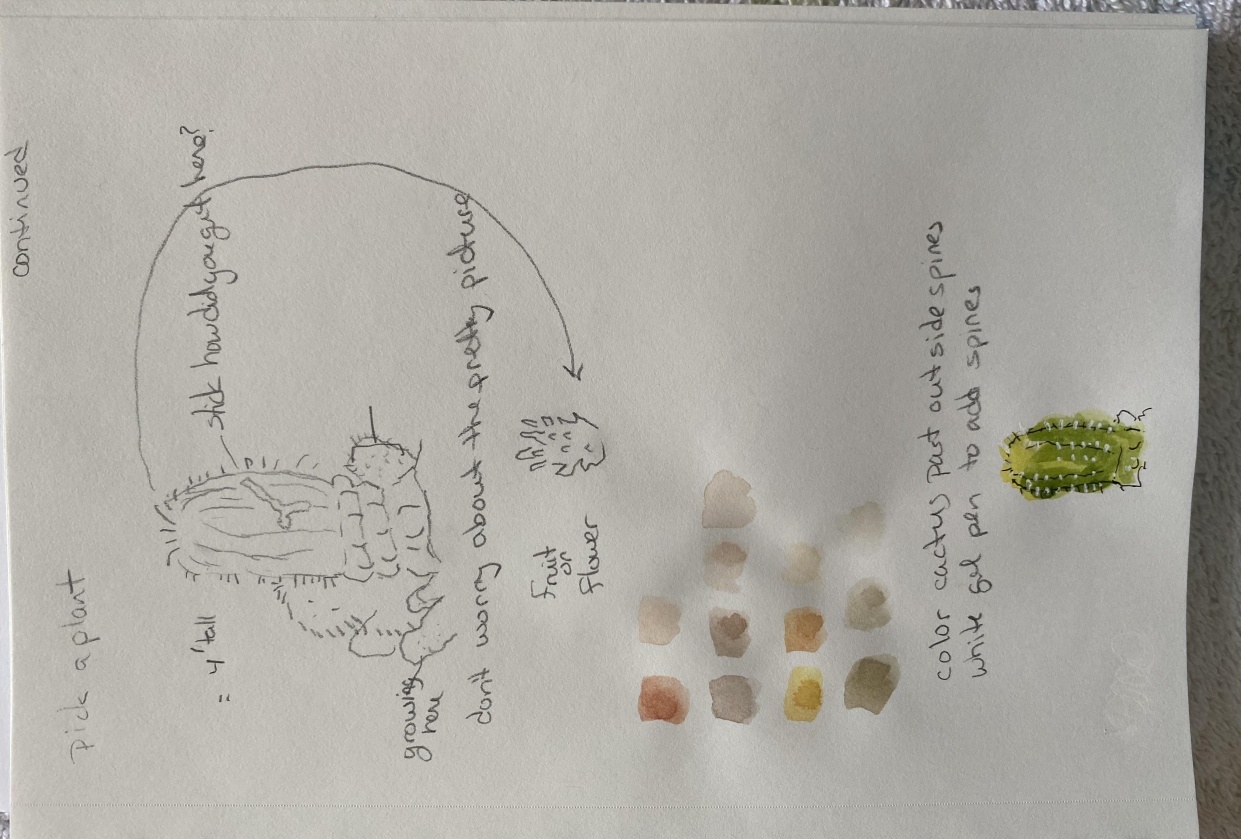 continued
pick a plant
stick how did you get here?
= 4' tall
growing
here
don't worry about the pretty picture
fruit
on
flower
color cactus past outside spines
white gel pen to add spines